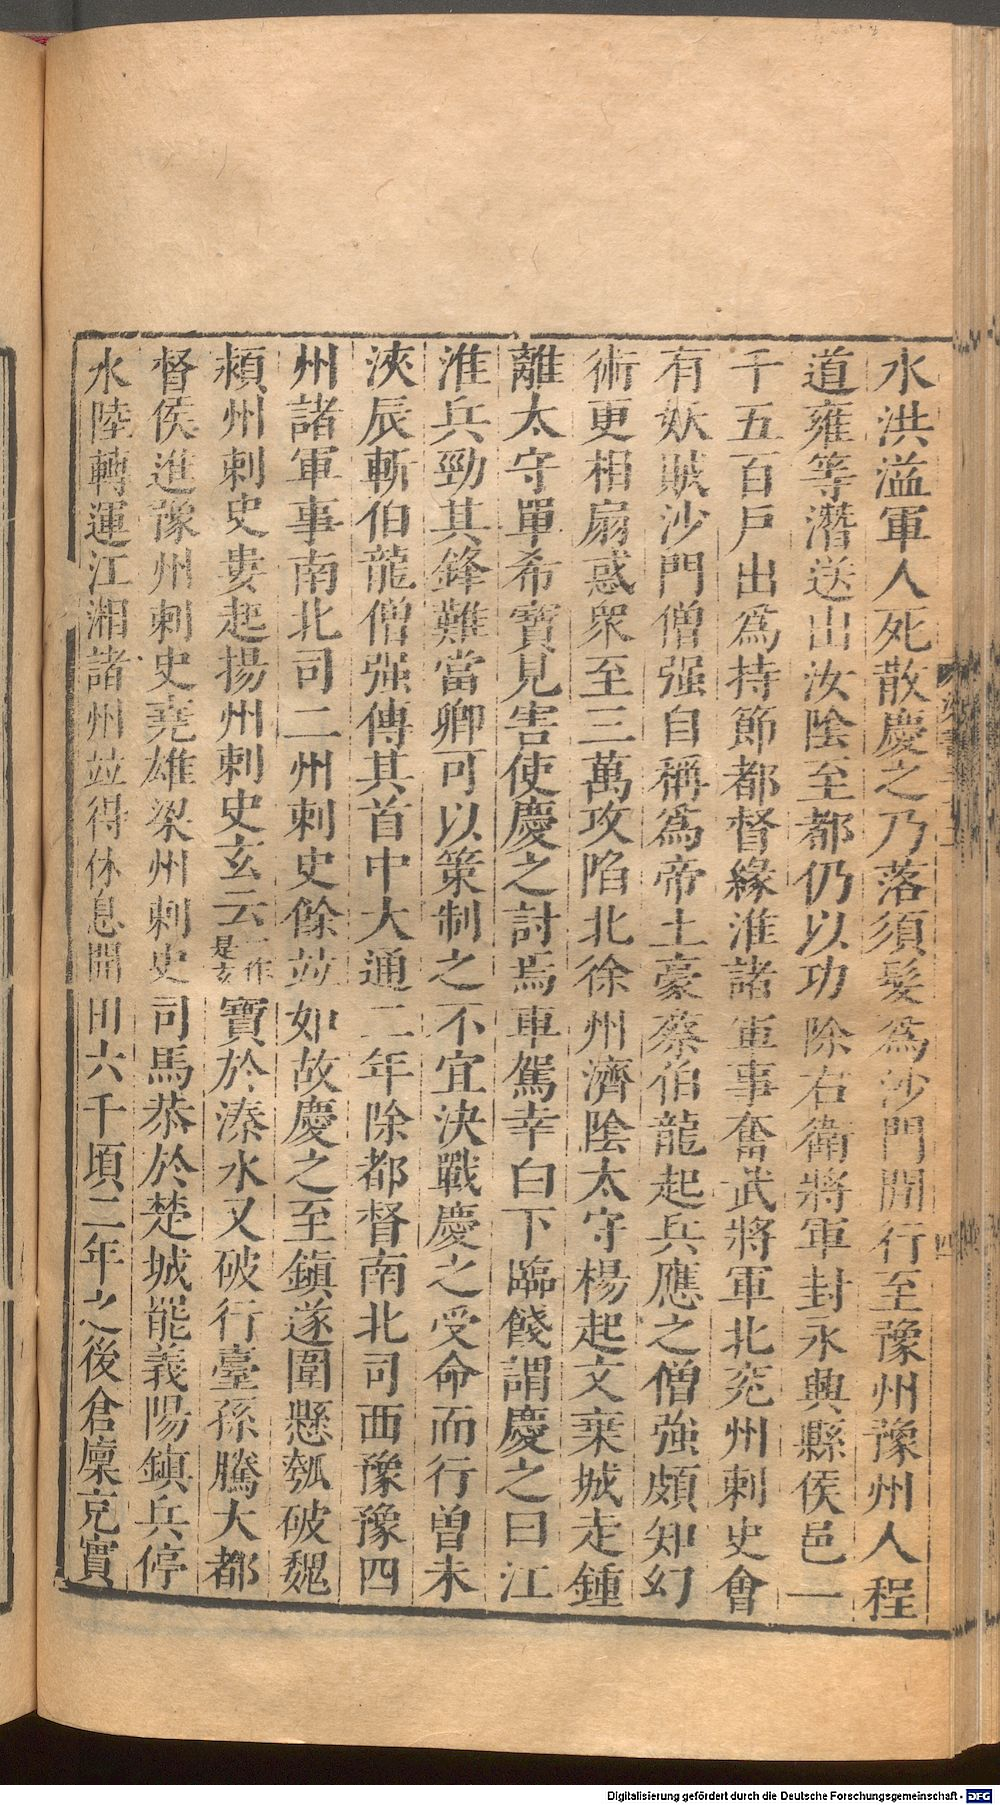 水洪溢軍人死散慶之乃落須髮爲沙門間行至豫州豫州人程
道雍等潛送出汝陰至都仍以功除右衛將軍封永興縣侯邑一
千五百戶出爲持節都督緣淮諸軍事奮武將軍北兖州刺史會
有妖賊沙門僧强自稱爲帝土豪蔡伯龍起兵應之僧強頗知幻
術更相扇惑衆至三萬攻陷北徐州濟陰太守楊起文棄城走鍾
離太守單希寶見害使慶之討焉車駕幸白下臨餞謂慶之曰江
淮兵勁其鋒難當卿可以策制之不宜決戰慶之受命而行曾未
浹辰斬伯龍僧强傳其首中大通二年除都督南北司西豫豫四
州諸軍事南北司二州刺史餘竝如故慶之至鎮遂圍懸瓠破魏
潁州刺史婁起揚州刺史玄云一作是玄寶於溱水又破行臺孫騰大都
督侯進豫州刺史堯雄梁州刺史司馬恭於楚城罷義陽鎮兵停
水陸轉運江湘諸州竝得休息開田六千頃二年之後倉廩充實
四
Digitalisierung gefördert durch die Deutsche Forschungsgemeinschaft - DFG